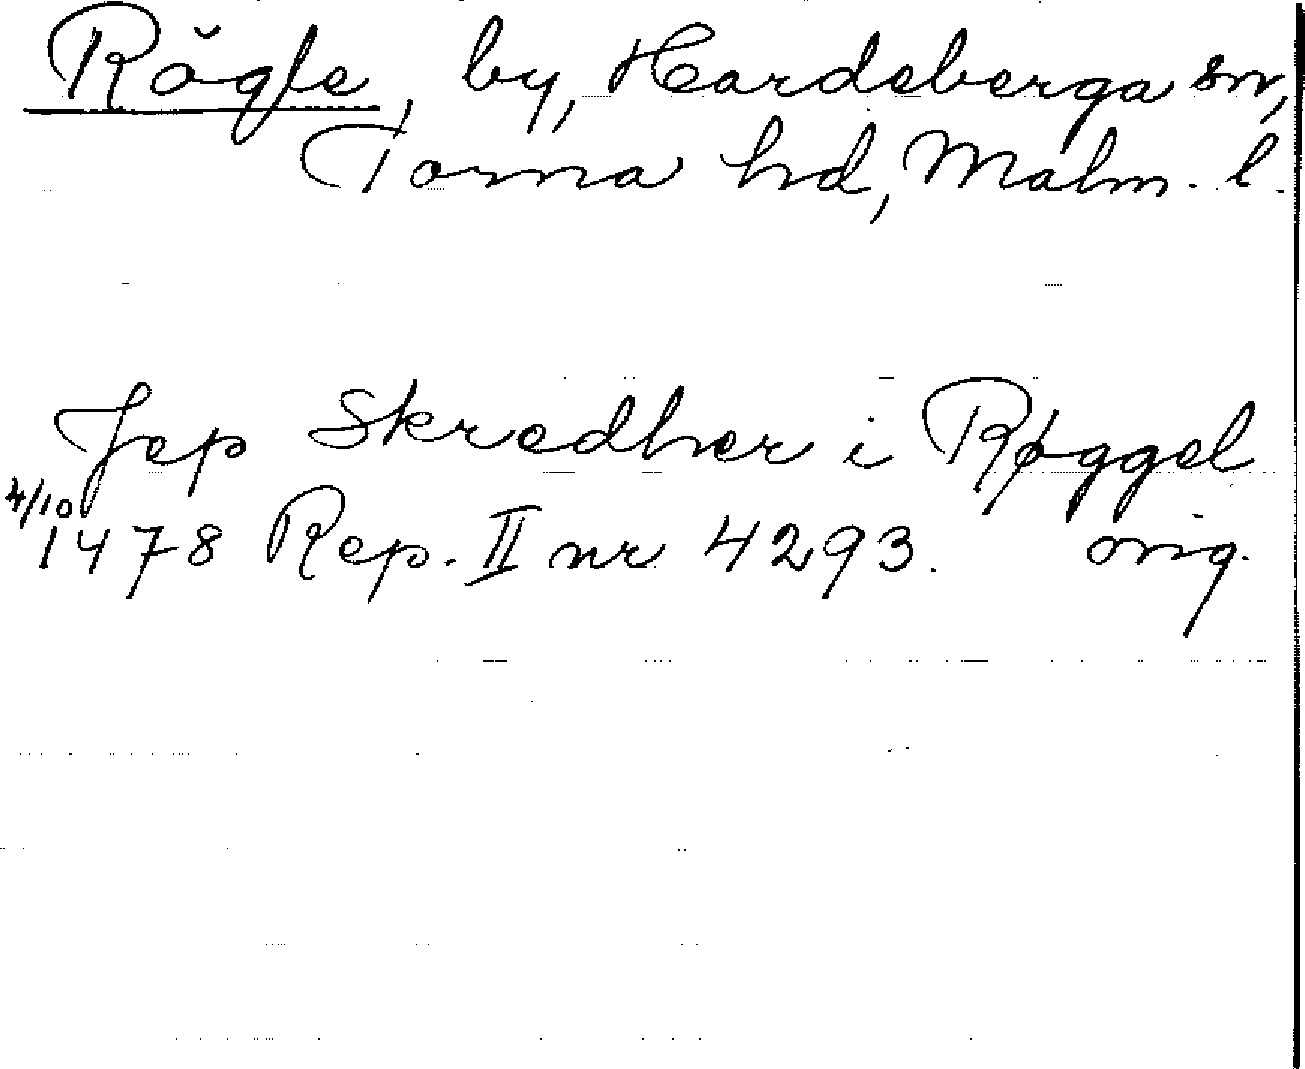 Rögle, by, Hardeberga sn,
Torna hd, Malm. l.
Jep Skredher i Røggel
4/10
1478 Rep. II nr 4293. orig.